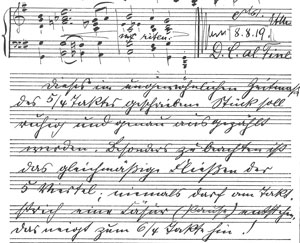 molto riten.
8.8.19.
D. C. al Fine
Dieses im ungewöhnlichen Zeitmaß
des 5/4 Taktes geschriebene Stück soll
ruhig und genau ausgezählt
werden. Besonders zu beachten ist
das gleichmäßige Fließen der
5 Viertel; niemals darf am Takt-
strich eine Cäsur (Pause) entstehn,
das neigt zum 6/4 Takt hin!